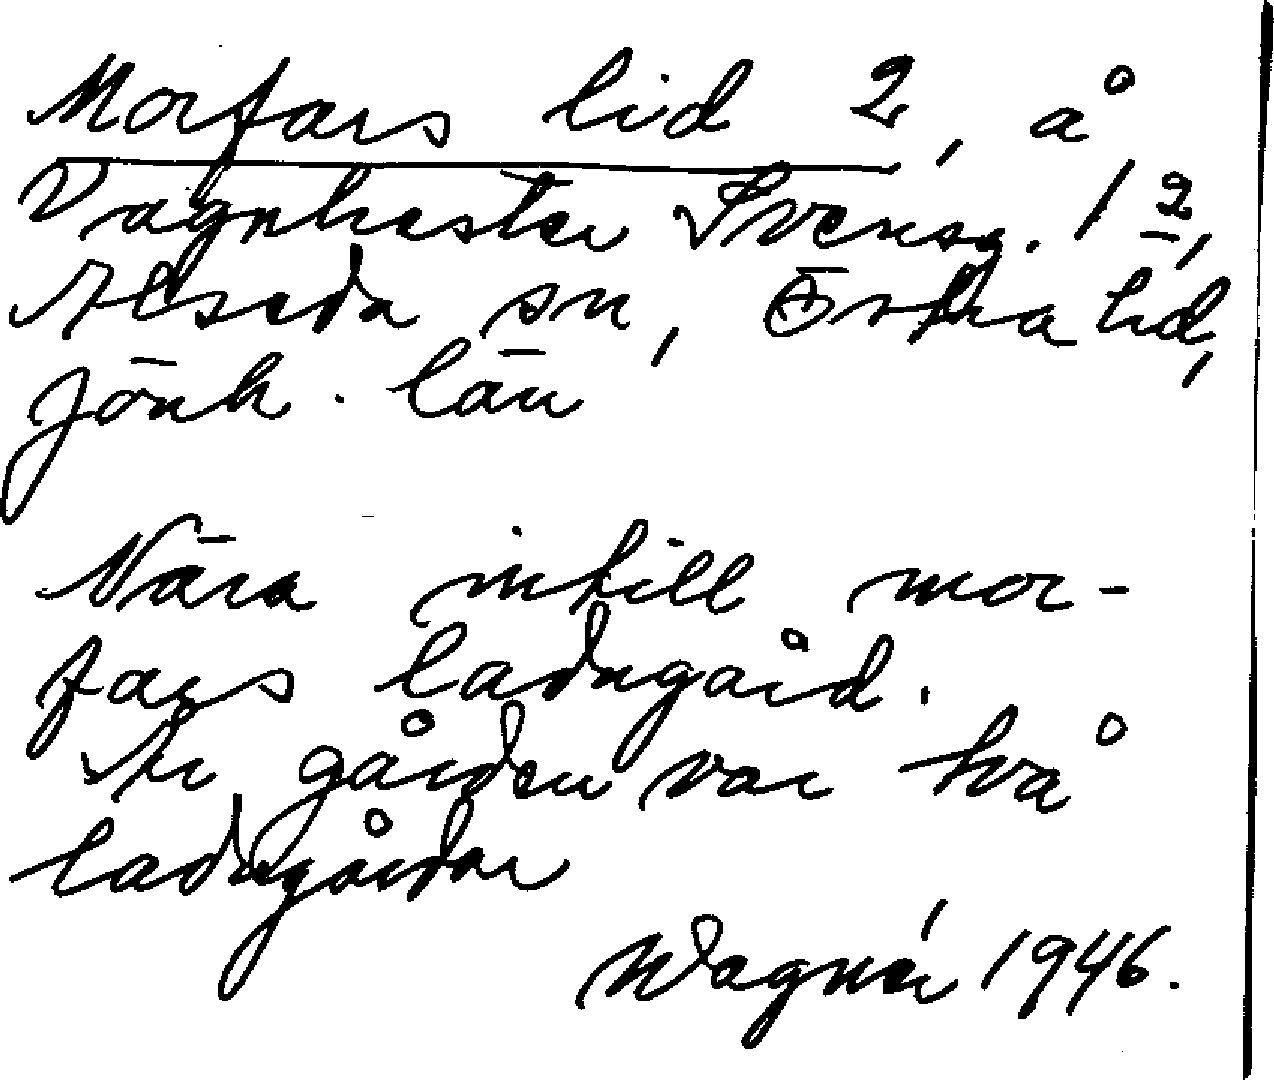 Morfars lid 2, å
Vagnhester Svensg. 1 2,
Alseda sn, Östra hd,
Jönk. län
Nära intill mor-
fars ladugård.
Å gården var två
ladugårdar
Wagnér 1946.